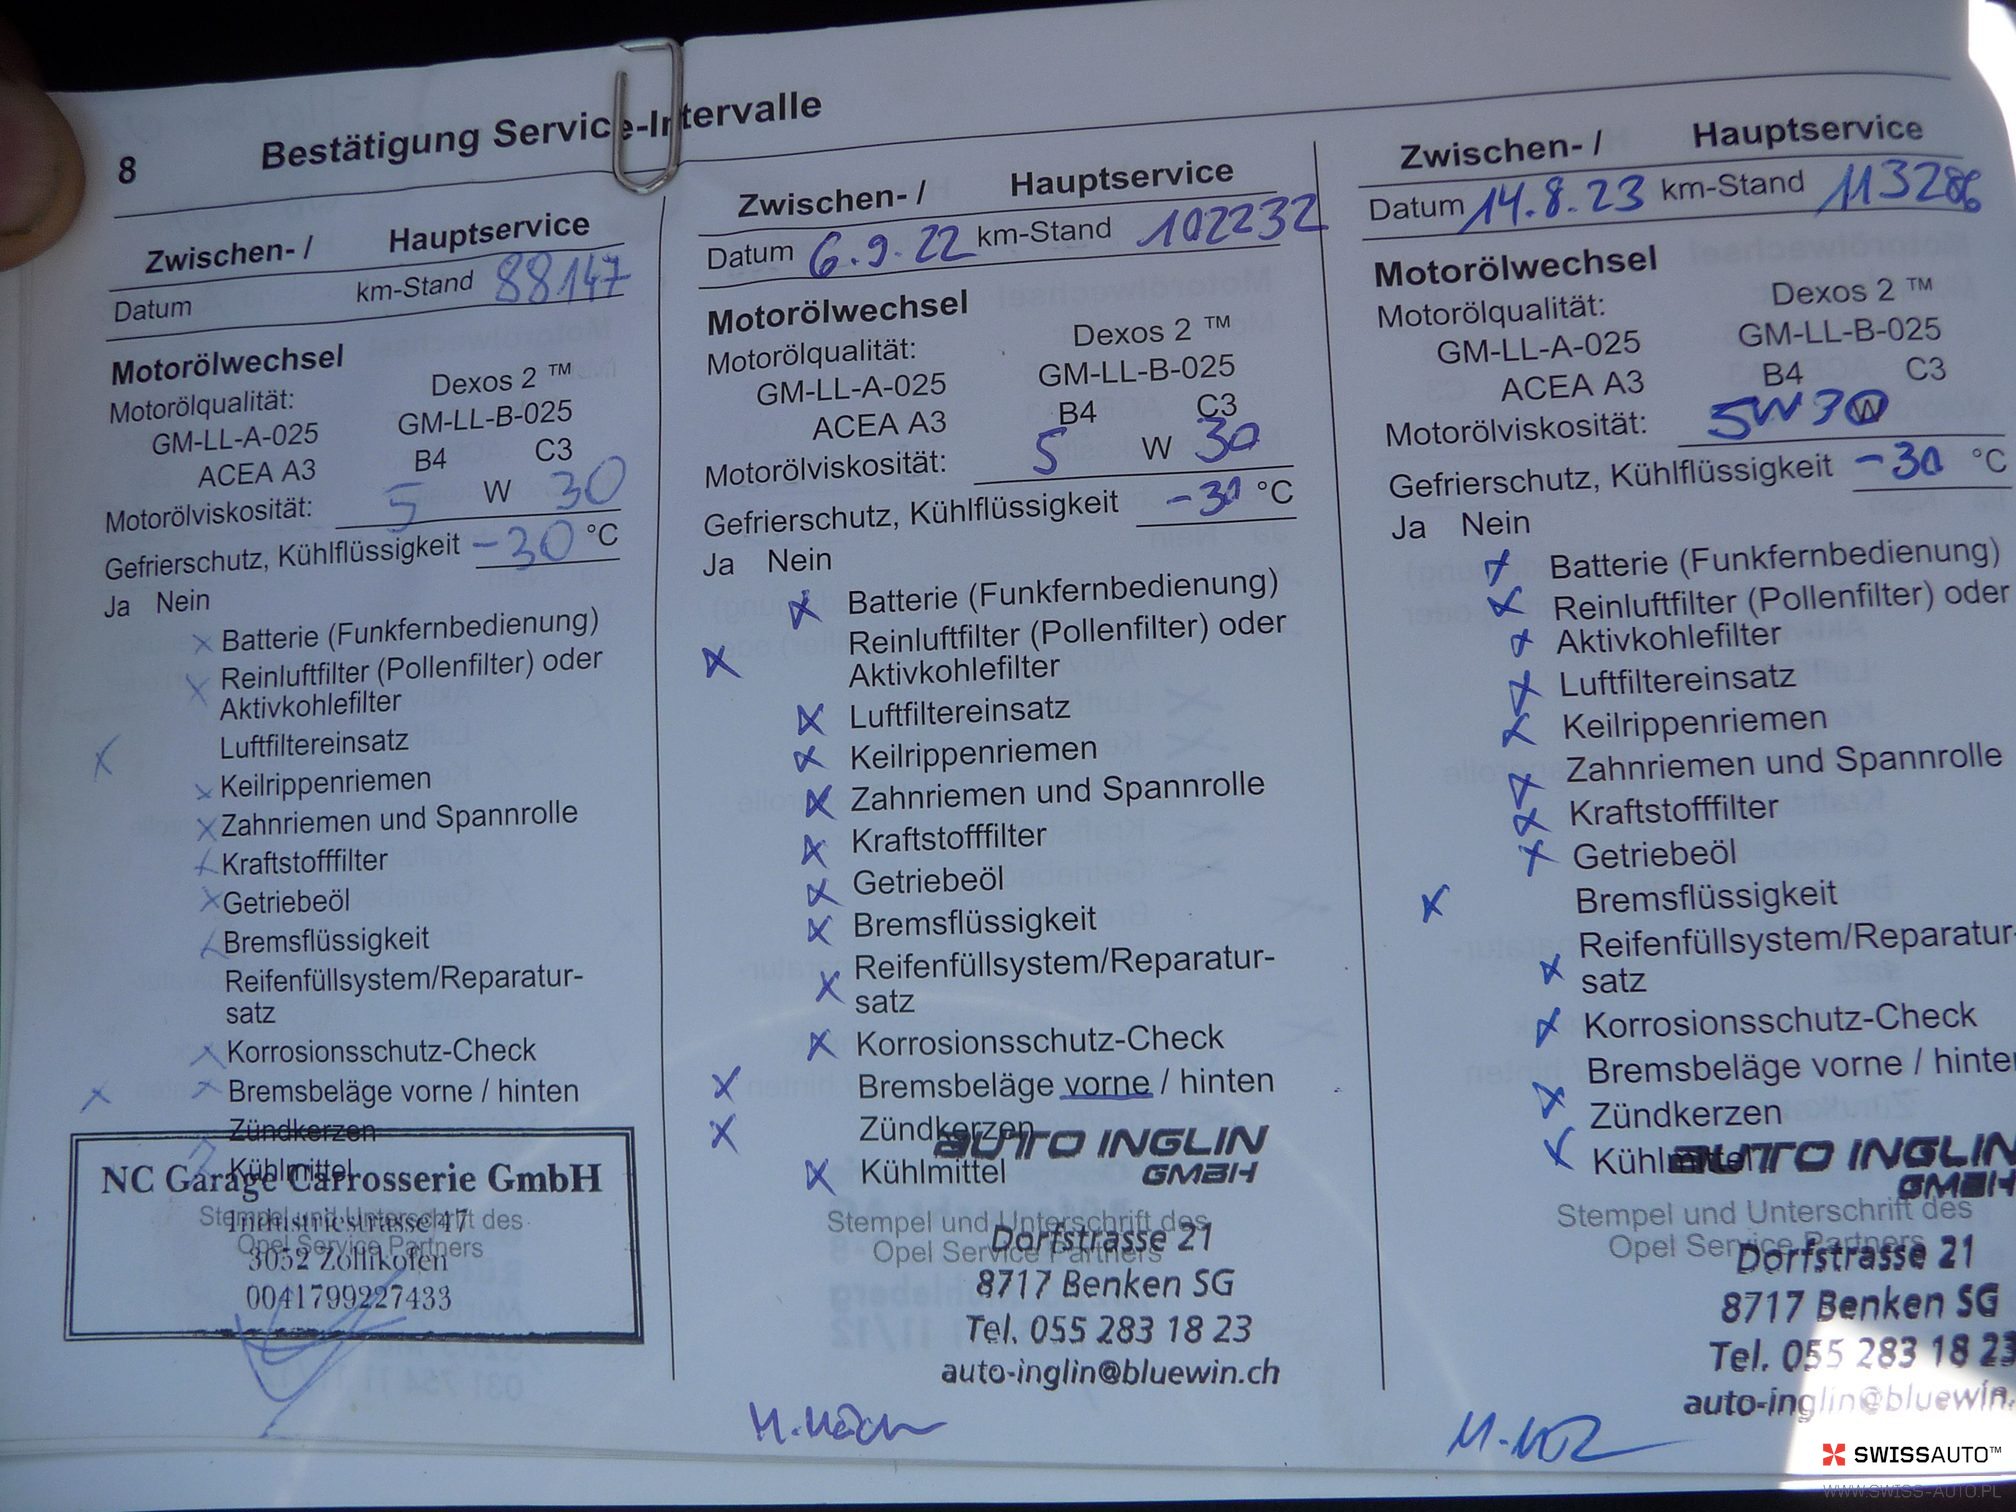 8 Bestätigung Service-Intervalle
Zwischen- / Hauptservice
Datum km-Stand 88147
Motorölwechsel
Motorölqualität: Dexos 2 ™
GM-LL-A-025 GM-LL-B-025
ACEA A3 B4 C3
Motorölviskosität: 5 W 30
Gefrierschutz, Kühlflüssigkeit -30 °C
Ja Nein
Batterie (Funkfernbedienung)
Reinluftfilter (Pollenfilter) oder
Aktivkohlefilter
Luftfiltereinsatz
Keilrippenriemen
Zahnriemen und Spannrolle
Kraftstofffilter
Getriebeöl
Bremsflüssigkeit
Reifenfüllsystem/Reparatur-
satz
Korrosionsschutz-Check
Bremsbeläge vorne / hinten
Zündkerzen
Kühlmittel
NC Garage Carrosserie GmbH
Stempel und Unterschrift des
Industriestrasse 47
Opel Service Partners
3052 Zollikofen
0041799227433
Zwischen- / Hauptservice
Datum 6.9.22 km-Stand 102232
Motorölwechsel
Motorölqualität: Dexos 2 ™
GM-LL-A-025 GM-LL-B-025
ACEA A3 B4 C3
Motorölviskosität: 5 W 30
Gefrierschutz, Kühlflüssigkeit -30 °C
Ja Nein
Batterie (Funkfernbedienung)
Reinluftfilter (Pollenfilter) oder
Aktivkohlefilter
Luftfiltereinsatz
Keilrippenriemen
Zahnriemen und Spannrolle
Kraftstofffilter
Getriebeöl
Bremsflüssigkeit
Reifenfüllsystem/Reparatur-
satz
Korrosionsschutz-Check
Bremsbeläge vorne / hinten
Zündkerzen
AUTO INGLIN
Kühlmittel
GMBH
Stempel und Unterschrift des
Dorfstrasse 21
Opel Service Partners
8717 Benken SG
Tel. 055 283 18 23
auto-inglin@bluewin.ch
Zwischen- / Hauptservice
Datum 14.8.23 km-Stand 113286
Motorölwechsel
Motorölqualität: Dexos 2 ™
GM-LL-A-025 GM-LL-B-025
ACEA A3 B4 C3
Motorölviskosität: 5W30 W
Gefrierschutz, Kühlflüssigkeit -30 °C
Ja Nein
Batterie (Funkfernbedienung)
Reinluftfilter (Pollenfilter) oder
Aktivkohlefilter
Luftfiltereinsatz
Keilrippenriemen
Zahnriemen und Spannrolle
Kraftstofffilter
Getriebeöl
Bremsflüssigkeit
Reifenfüllsystem/Reparatur-
satz
Korrosionsschutz-Check
Bremsbeläge vorne / hinten
Zündkerzen
Kühlmittel
AUTO INGLIN
GMBH
Stempel und Unterschrift des
Opel Service Partners
Dorfstrasse 21
8717 Benken SG
Tel. 055 283 18 23
auto-inglin@bluewin.
SWISSAUTO™
WWW.SWISS-AUTO.PL